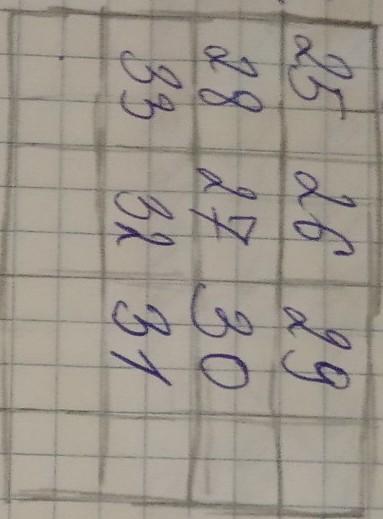 25 26 29
28 27 30
33 32 31